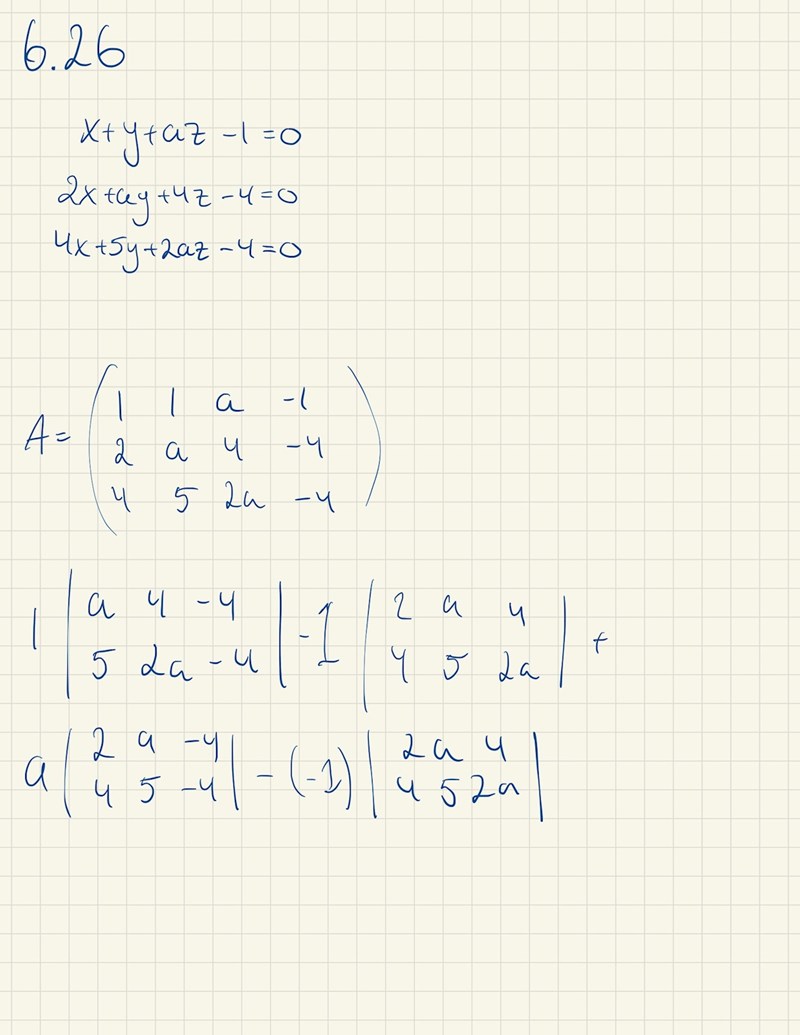 6.26
x+y+az -1=0
2x+ay+4z -4=0
4x+5y+2az -4=0
1 1 a -1
A= 2 a 4 -4
4 5 2a -4
1 | a 4 -4 | -1 | 2 a 4 | +
| 5 2a -4 | | 4 5 2a |
a | 2 a -4 | - (-1) | 2 a 4 |
| 4 5 -4 | | 4 5 2a |